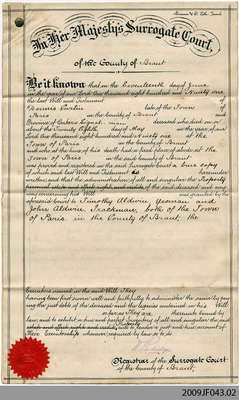 In Her Majesty's Surrogate Court,
of the County of Brant
Be it known that on the Seventeenth day of June
in the year of our Lord One thousand eight hundred and Ninety one
the last Will and Testament of
late of the Town of
Paris in the County of Brant and
Province of Ontario
about the Twenty day of May in the year of our
Lord One thousand eight hundred and Ninety one at the
Town of Paris in the County of Brant
and who at the time of his death had a fixed place of abode at the
Town of Paris in the said County of Brant
was proved and registered in the said Surrogate Court a true copy
of which said last Will and Testament is hereunder
written and that the administration of all and singular the Property
of the said deceased and any
way concerning his Will was granted by the
aforesaid Court to Timothy Aldwin Yeoman and
John Aldwin both of the Town
of Paris in the County of Brant, the
Executors named in the said Will They
having been first sworn well and faithfully to administer the same by pay-
ing the just debts of the deceased and the legacies contained in his Will
so far as They are thereunto bound by
law, and to exhibit a true and perfect Inventory of all and singular the
and to render a just and true account of
their Executorship whenever required by law so to do.
Registrar of the Surrogate Court
of the County of Brant.
2009JF043.02